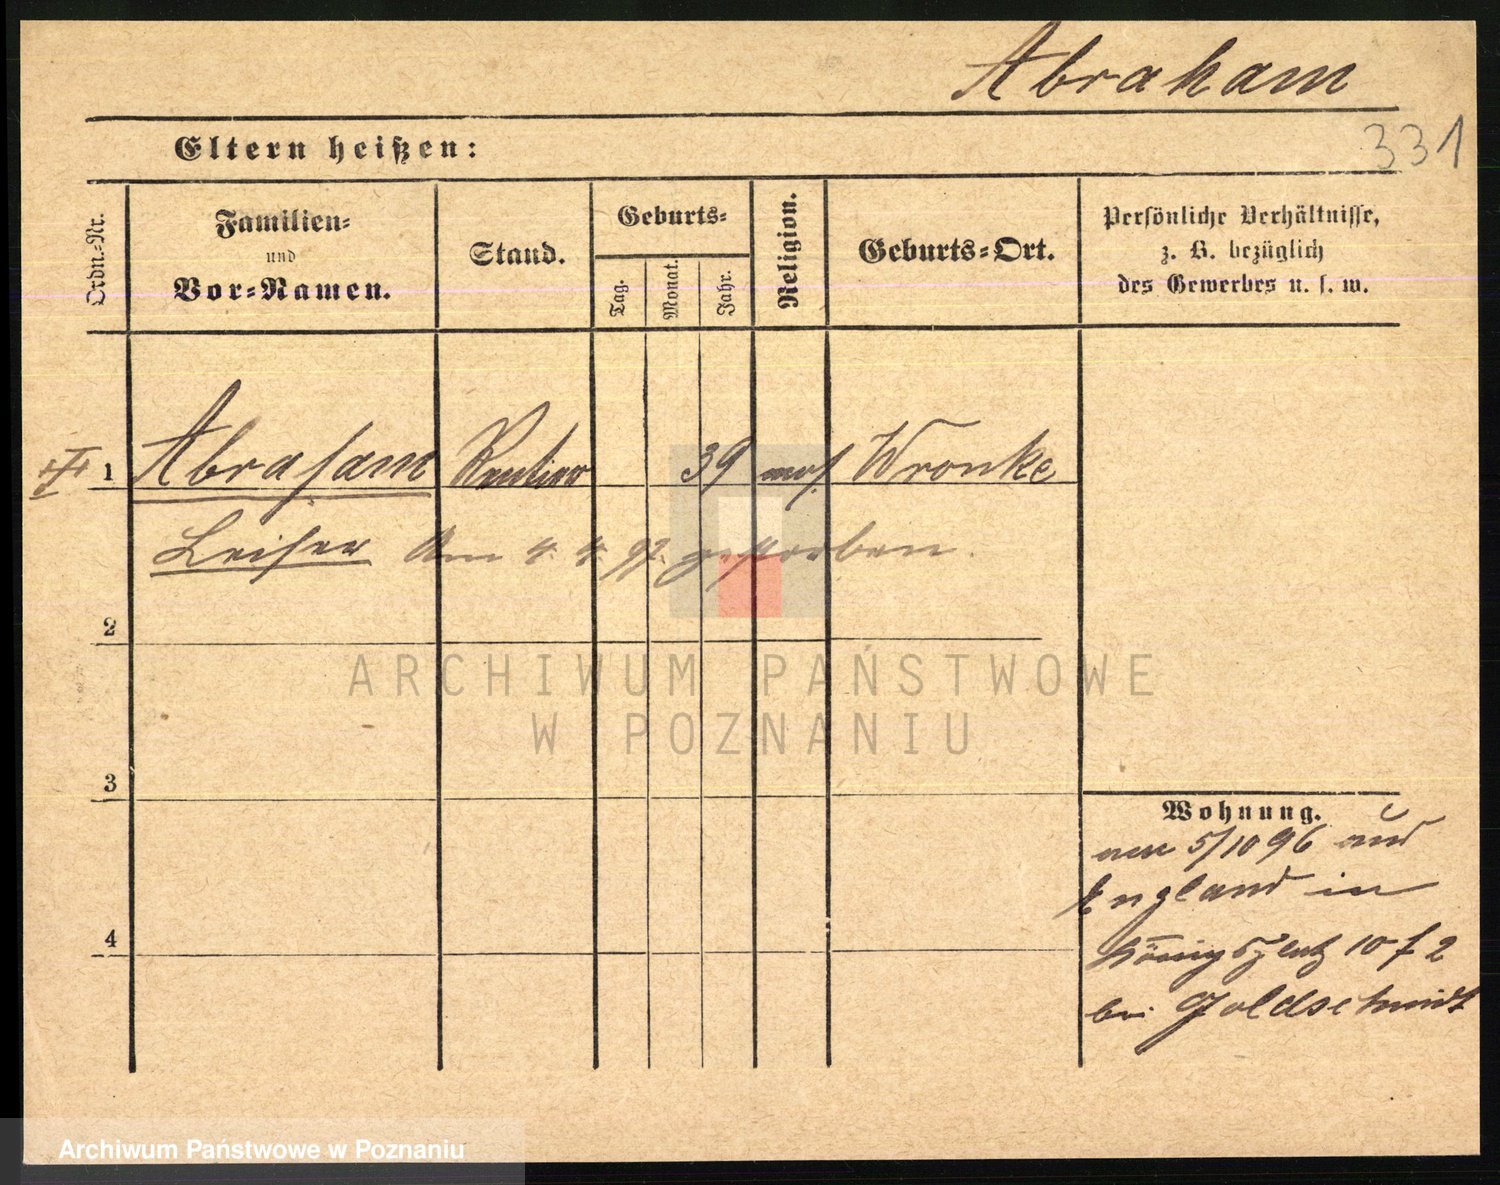 Abraham
331
Eltern heißen:
Ordn.-Nr.
Familien-
und
Vor-Namen.
Stand.
Geburts-
Tag.
Monat.
Jahr.
Religion.
Geburts-Ort.
Persönliche Verhältnisse,
z. B. bezüglich
des Gewerbes u. s. w.
1 Abraham Rentier 39 mos. Wronke
Leiser Am 4. 4. 97. gestorben.
2
3
4
Wohnung.
5/10 96 aus
England in
Königsplatz 10 f 2
bei Goldschmidt
ARCHIWUM PAŃSTWOWE
W POZNANIU
Archiwum Państwowe w Poznaniu